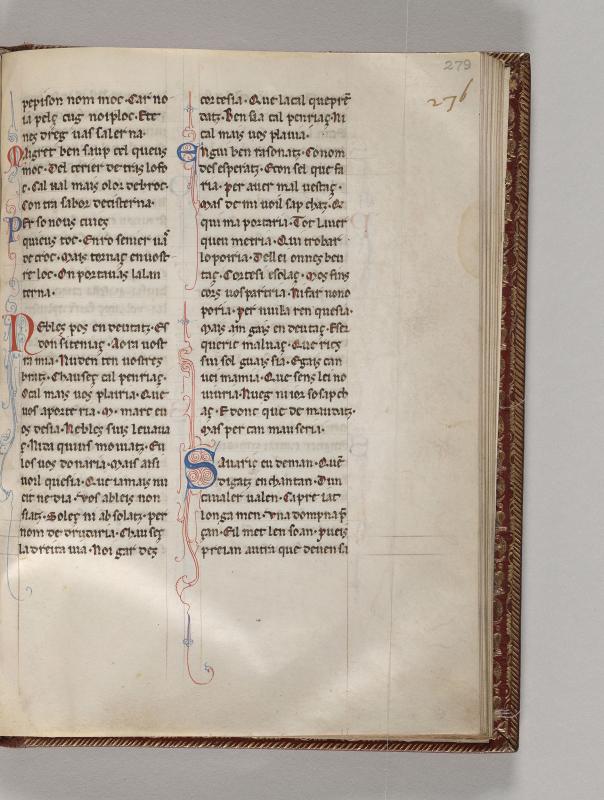 279
276
pepison nom moc. Car no
ia pelç cug noi ploc. Ete
neç dreg uas saler na.
Migret ben saup cel queus
moc. Del cerier de tris loso
c. Cal ual mais olor de broc.
Con tra sabor de cisterna.
Per so nous cuies
quieus toc. En ro semer
de croc. Mais ternaç en uost
re loc. On portauas la lan
terna.
Nebles pos en deutatz. Es
don siteniaç. Aora uost
ra mia. Ni den ten uostres
bratz. Chauseç cal penriaç.
O cal mais uos plairia. Que
uos aporte ria. O. marc eu
os desia. Nebles suis leuaua
ç. Nida quius mouiatz. En
los uos donaria. Mais aisi
uoil quesia. Que iamais nu
cit ne dia. Uos ableis non
siatz. Soleç ni ab solatz. per
nom de drudaria. Chauseç
la dreita uia. Noi gar deç
cortesia. Que la cal queprē
datz. Ben sia cal penriaç. Ni
cal mais uos plauia.
Engui ben rasonatz. Co nom
des esperatz. Econ sel que fa
ria. per auer mal uestaç.
Mas de mi uoil sap chaz. Q
qui ma portaria. Tot liuer
queu metria. Qui trobar
lo poiria. Dellei on nes beu
taç. Cortesi esolaç. Mos fins
cors uos partria. Ni far nono
poria. per nuilla ren quesia.
Mais am gaç en deutaç. Eser
queric maluaç. Que rics
sui sol guais sia. Egais can
uei mamia. Que sens lei no
uiuria. Nueg ni ior so sap ch
aç. E donc que de maudatz.
Mas per can mauseria.
Sauaric eu deman. Quē
digatz en chantan. Dun
caualer ualen. Capre iat
longa men. Una dompna p
çan. Eil met len soan. pueis
preian autra que deuen sa